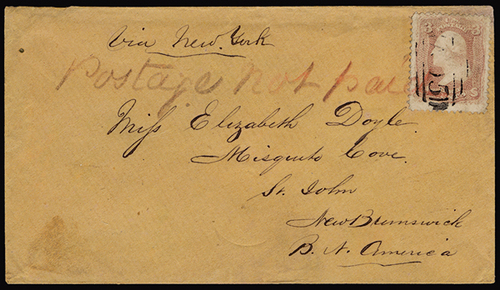 Via New York
Postage not paid
Miss Elizabeth Doyle
Misquito Cove
St. John
New Brunswick
B. N. America
3 3